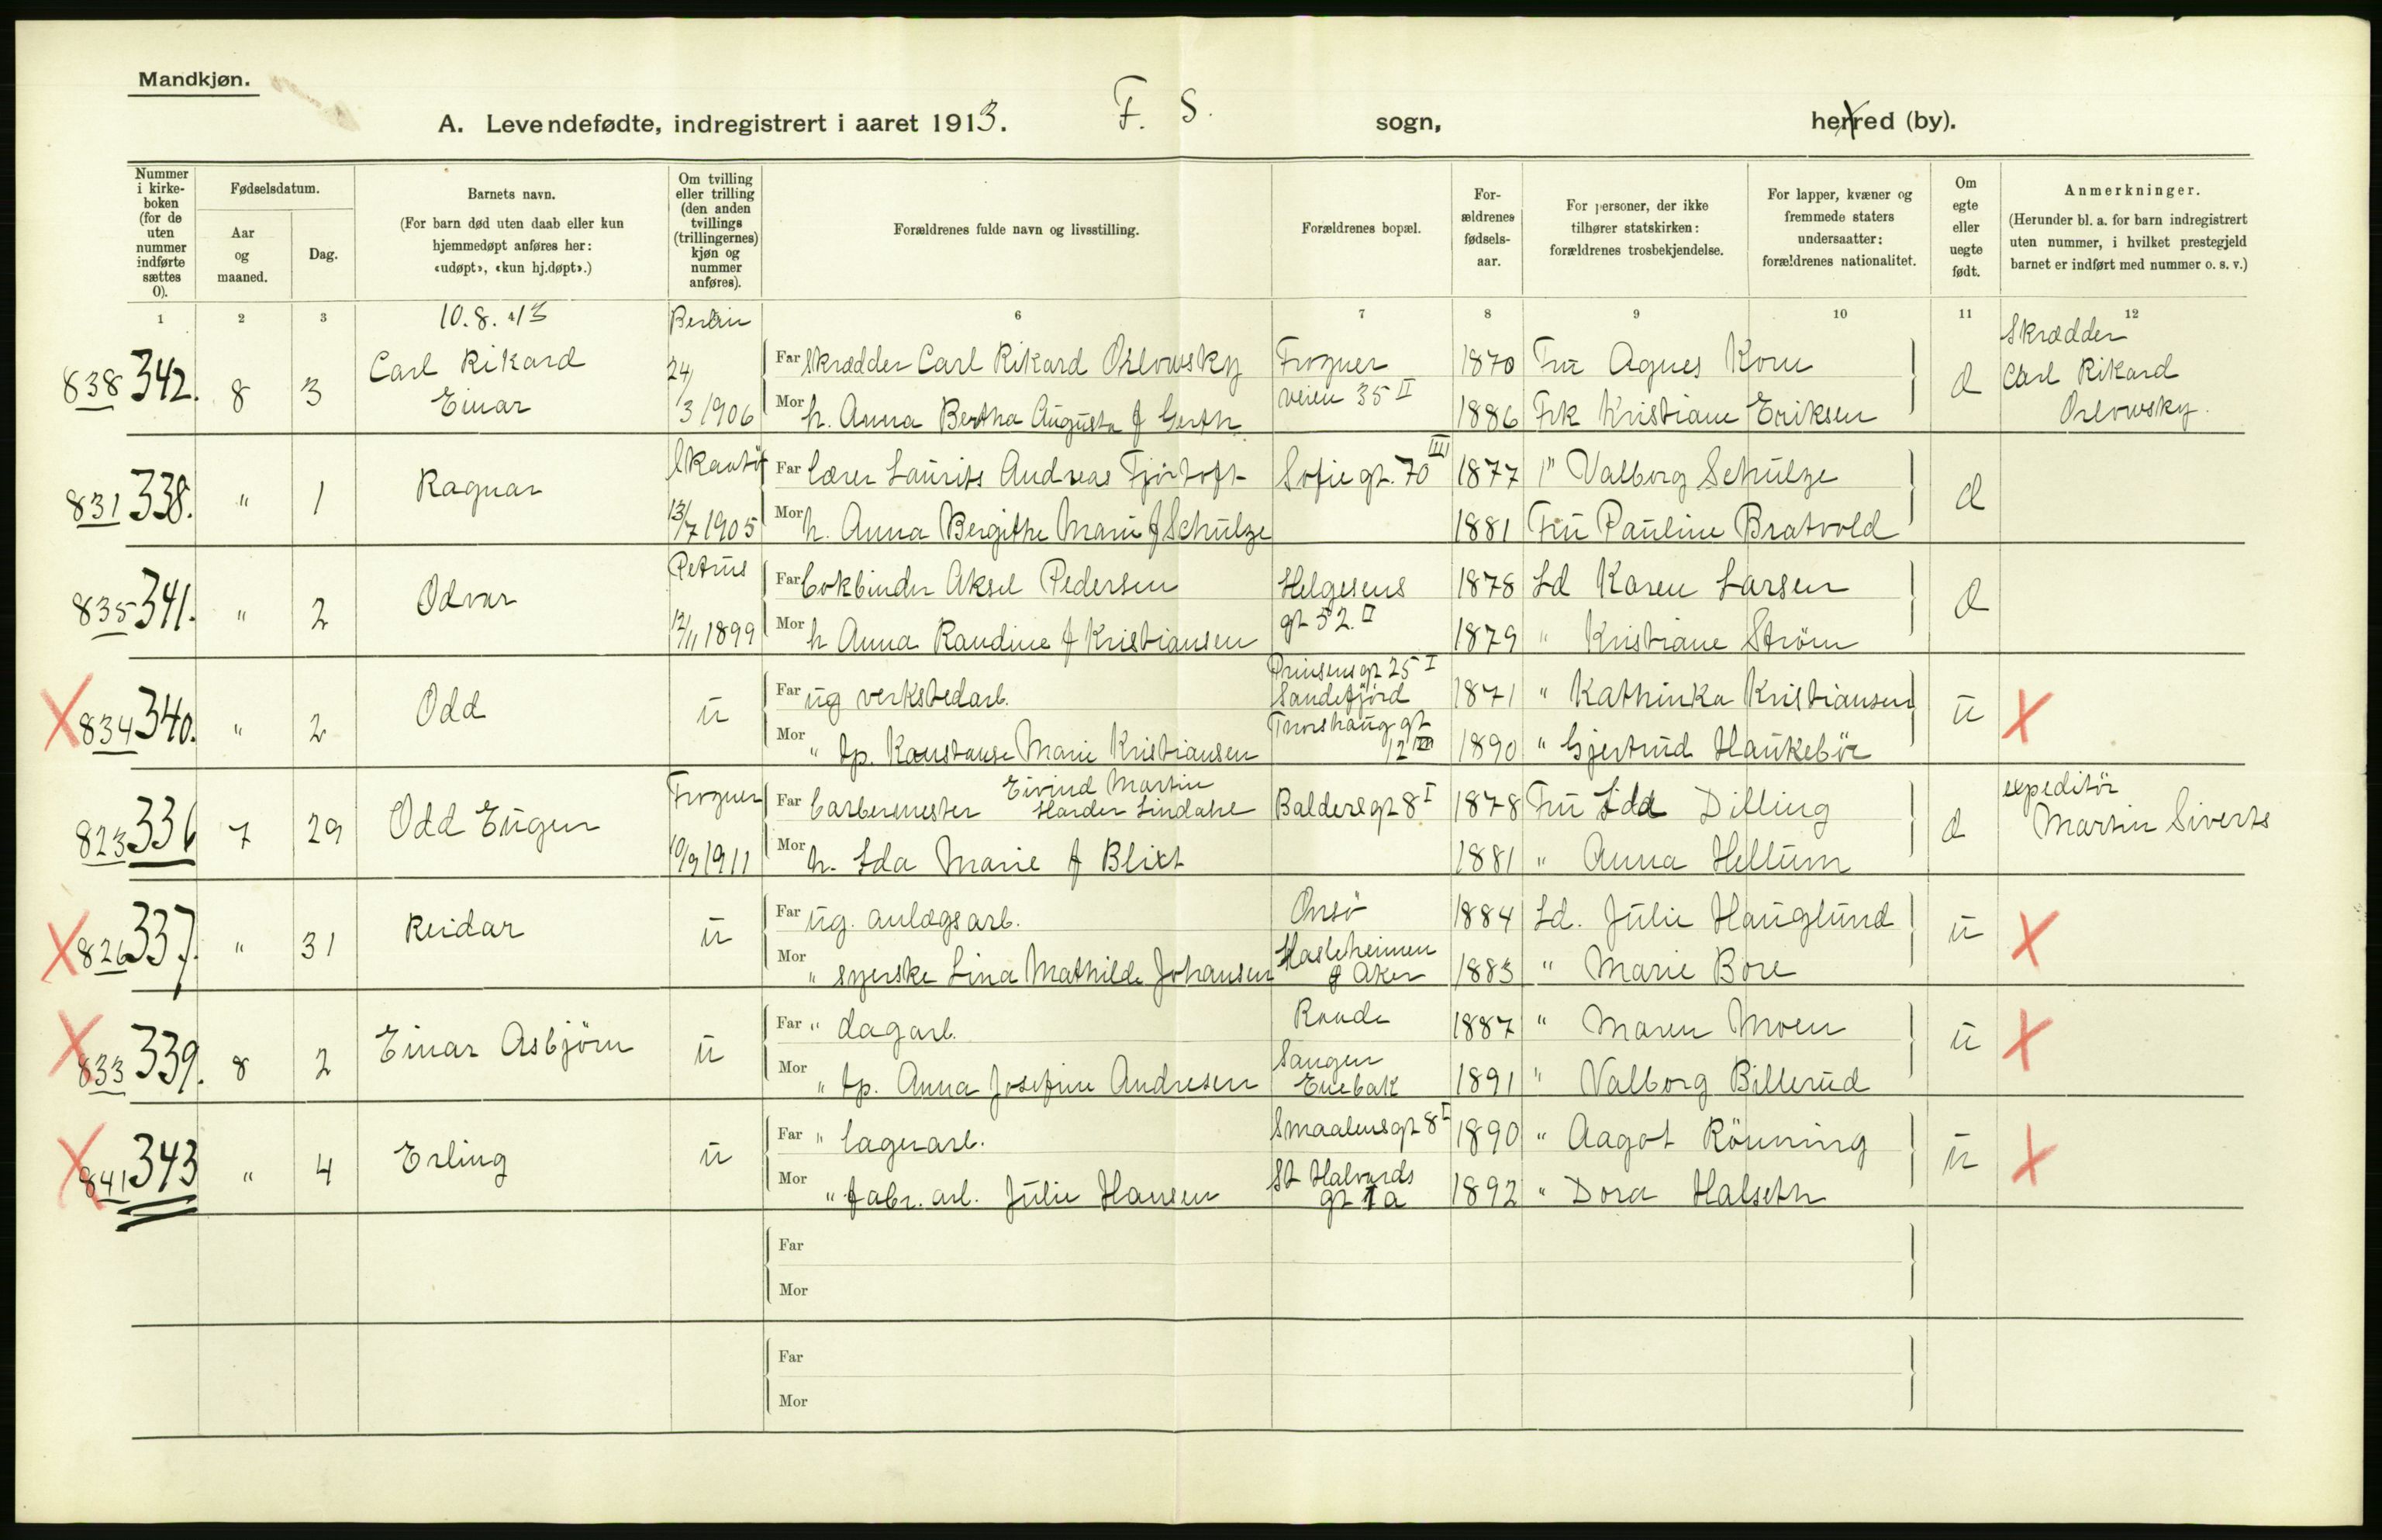 Mandkjøn.
A. Levendefødte, indregistrert i aaret 1913. F. S. sogn, herred (by).
Nummer i kirke-boken (for de uten nummer indførte sættes 0).
Fødselsdatum.
Aar og maaned.
Dag.
Barnets navn.
(For barn død uten daab eller kun hjemmedøpt anføres her: «udøpt», «kun hj.døpt».)
Om tvilling eller trilling (den anden tvillings (trillingernes) kjøn og nummer anføres).
Forældrenes fulde navn og livsstilling.
Forældrenes bopæl.
For-ældrenes fødsels-aar.
For personer, der ikke tilhører statskirken: forældrenes trosbekjendelse.
For lapper, kvæner og fremmede staters undersaatter: forældrenes nationalitet.
Om egte eller uegte født.
Anmerkninger.
(Herunder bl. a. for barn indregistrert uten nummer, i hvilket prestegjeld barnet er indført med nummer o. s. v.)
1 2 3 10.8.13 6 7 8 9 10 11 12
838 342. 8 3 Carl Rikard Einar
Berlin 24/3 1906
Far Skrædder Carl Rikard Orlowsky Frogner 1870 Fru Agnes Korn
Mor h. Anna Bertha Augusta f Gerth veien 35 II 1886 Frk Kristiane Eriksen
d Skrædder Carl Rikard Orlowsky.
831 338. " 1 Ragnar
13/7 1905
Far Lærer Laurits Andreas Fjørtoft Sofie gt. 70 III 1877 " Valborg Schulze
Mor h. Anna Bergithe Marie f Schulze 1881 Fru Pauline Bratvold
d
835 341. " 2 Odvar
Petrus 12/11 1899
Far bokbinder Aksel Pedersen Helgesens 1878 Ld Karen Larsen
Mor h Anna Randine f Kristiansen gt 52. II 1879 " Kristiane Strøm
d
X 834 340. " 2 Odd ü
Far ug verkstedarb. Prinsensgt 25 I Sandefjord 1871 " Kathinka Kristiansen
Mor " tp. Konstanse Marie Kristiansen Thorshaug gt 12 III 1890 " Gjertrud Haukebø
ü X
823 336 7 29 Odd Eugen
Frogner 10/9 1911
Far barbermester Eivind Martin Harder Lindahl Baldersgt 8 I 1878 Fru Ida Dilling
Mor h. Ida Marie f Blixt 1881 " Anna Hellum
d expeditör Martin Siverts
X 826 337. " 31 Reidar ü
Far ug. anlægsarb. Onsö 1884 Ld. Julie Hauglund
Mor " syerske Lina Mathilde Johansen Hasleheimen Aker 1883 " Marie Bore
ü X
X 833 339. 8 2 Einar Asbjörn ü
Far " dagarb. Raade 1887 " Maren Moen
Mor " tp. Anna Josefine Andresen Enebak 1891 " Valborg Billerud
ü X
X 841 343 " 4 Erling ü
Far " lagerarb. Smaalensgt 8 I 1890 " Aagot Rönning
Mor " fabr. arb. Julie Hansen St Halvards gt 1 a 1892 " Dora Halseth
ü X
Far
Mor
Far
Mor